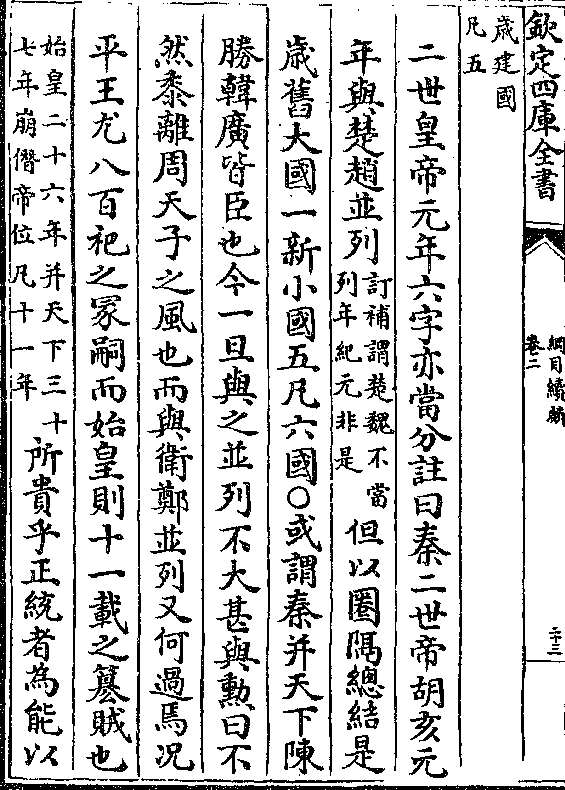 欽定四庫全書
綱目續麟
卷二
二十三
歲建國
凡五
二世皇帝元年六字亦當分註曰秦二世帝胡亥元
年與楚趙並列訂補謂楚魏不當
列年紀元非是但以圈隅總結是
歲舊大國一新小國五凡六國○或謂秦并天下陳
勝韓廣皆臣也今一旦與之並列不大甚與勲曰不
然黍離周天子之風也而與衛鄭並列又何過焉况
平王尤八百祀之冢嗣而始皇則十一載之簒賊也
始皇二十六年并天下三十
七年崩僭帝位凡十一年所貴乎正統者為能以